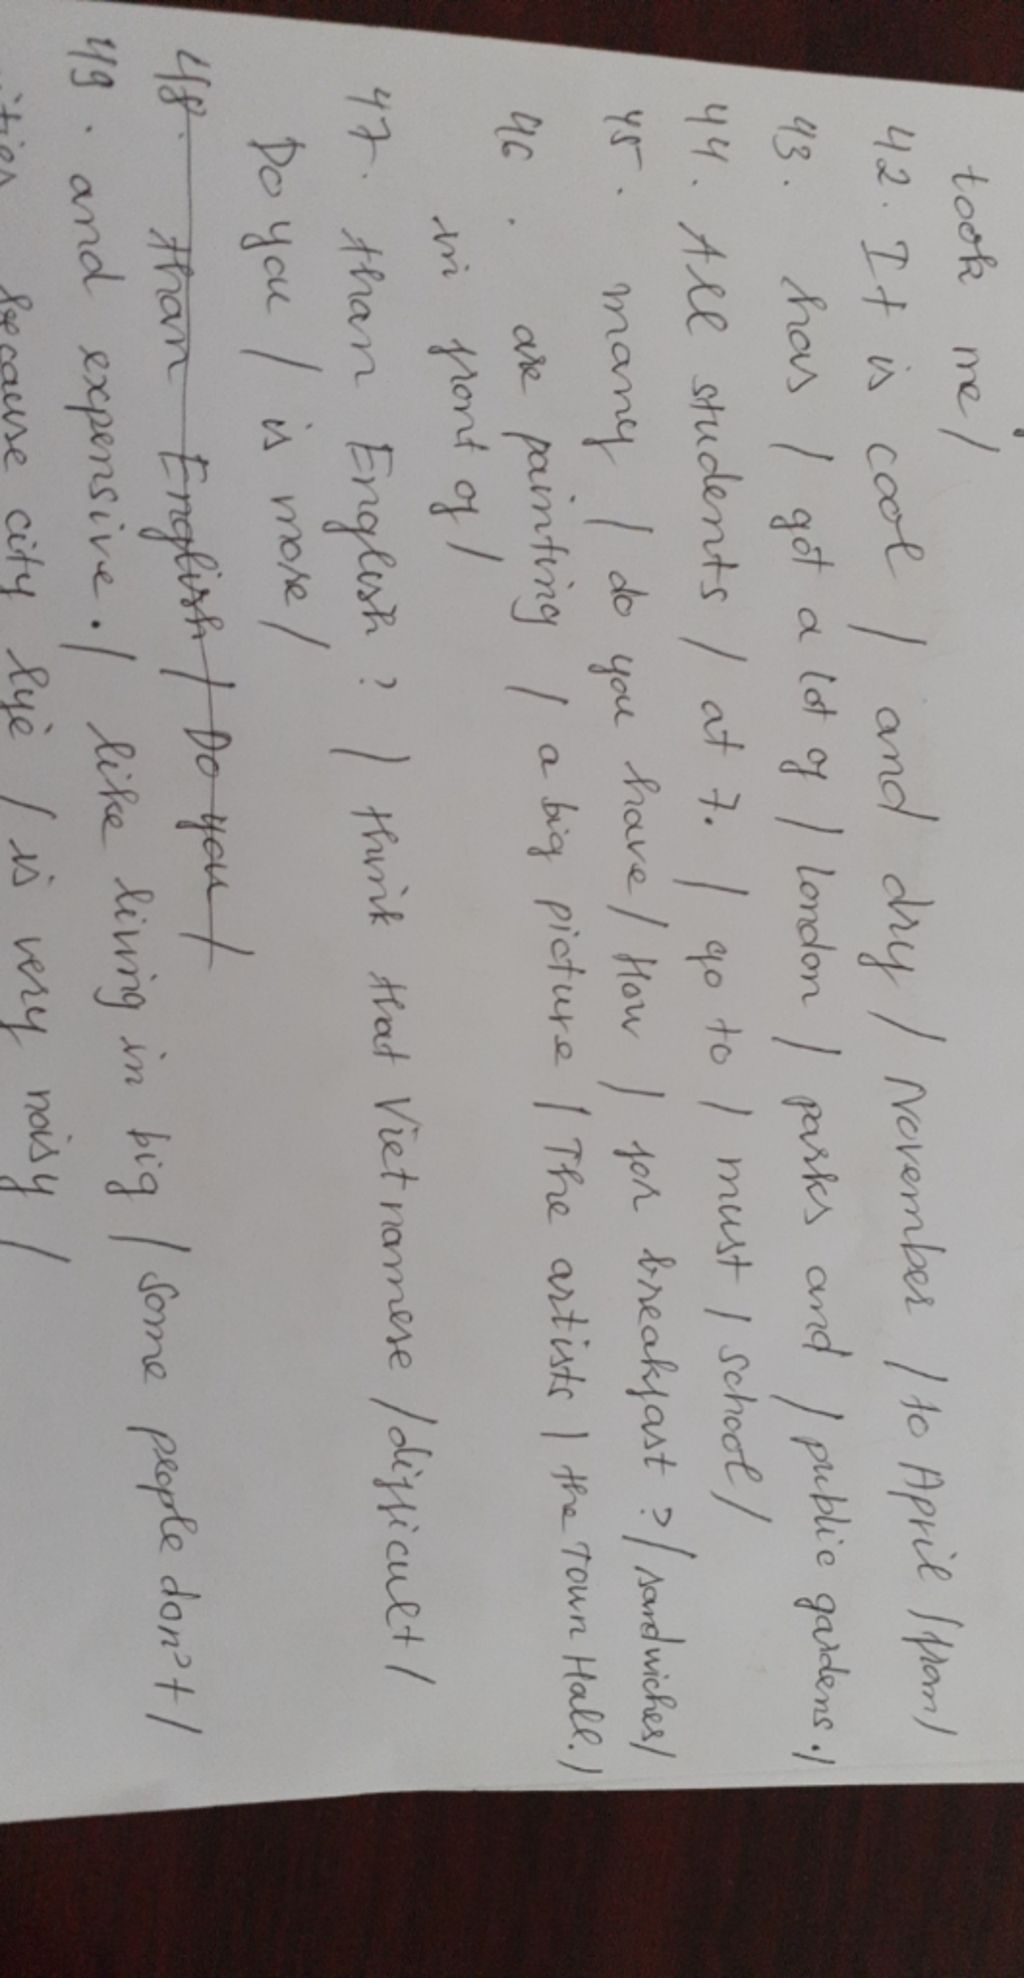 took me /
42. It is cool / and dry / November / to April / from /
43. has / got a lot of / London / parks and / public gardens. /
44. All students / at 7. / go to / must / school /
45. many / do you have / How / for breakfast ? / sandwiches /
46. are painting / a big picture / The artists / the Town Hall. /
in front of /
47. than English ? / think that Vietnamese / difficult /
Do you / is more /
48. than English / Do you /
49. and expensive. / like living in big / some people don't /
because city life / is very noisy /